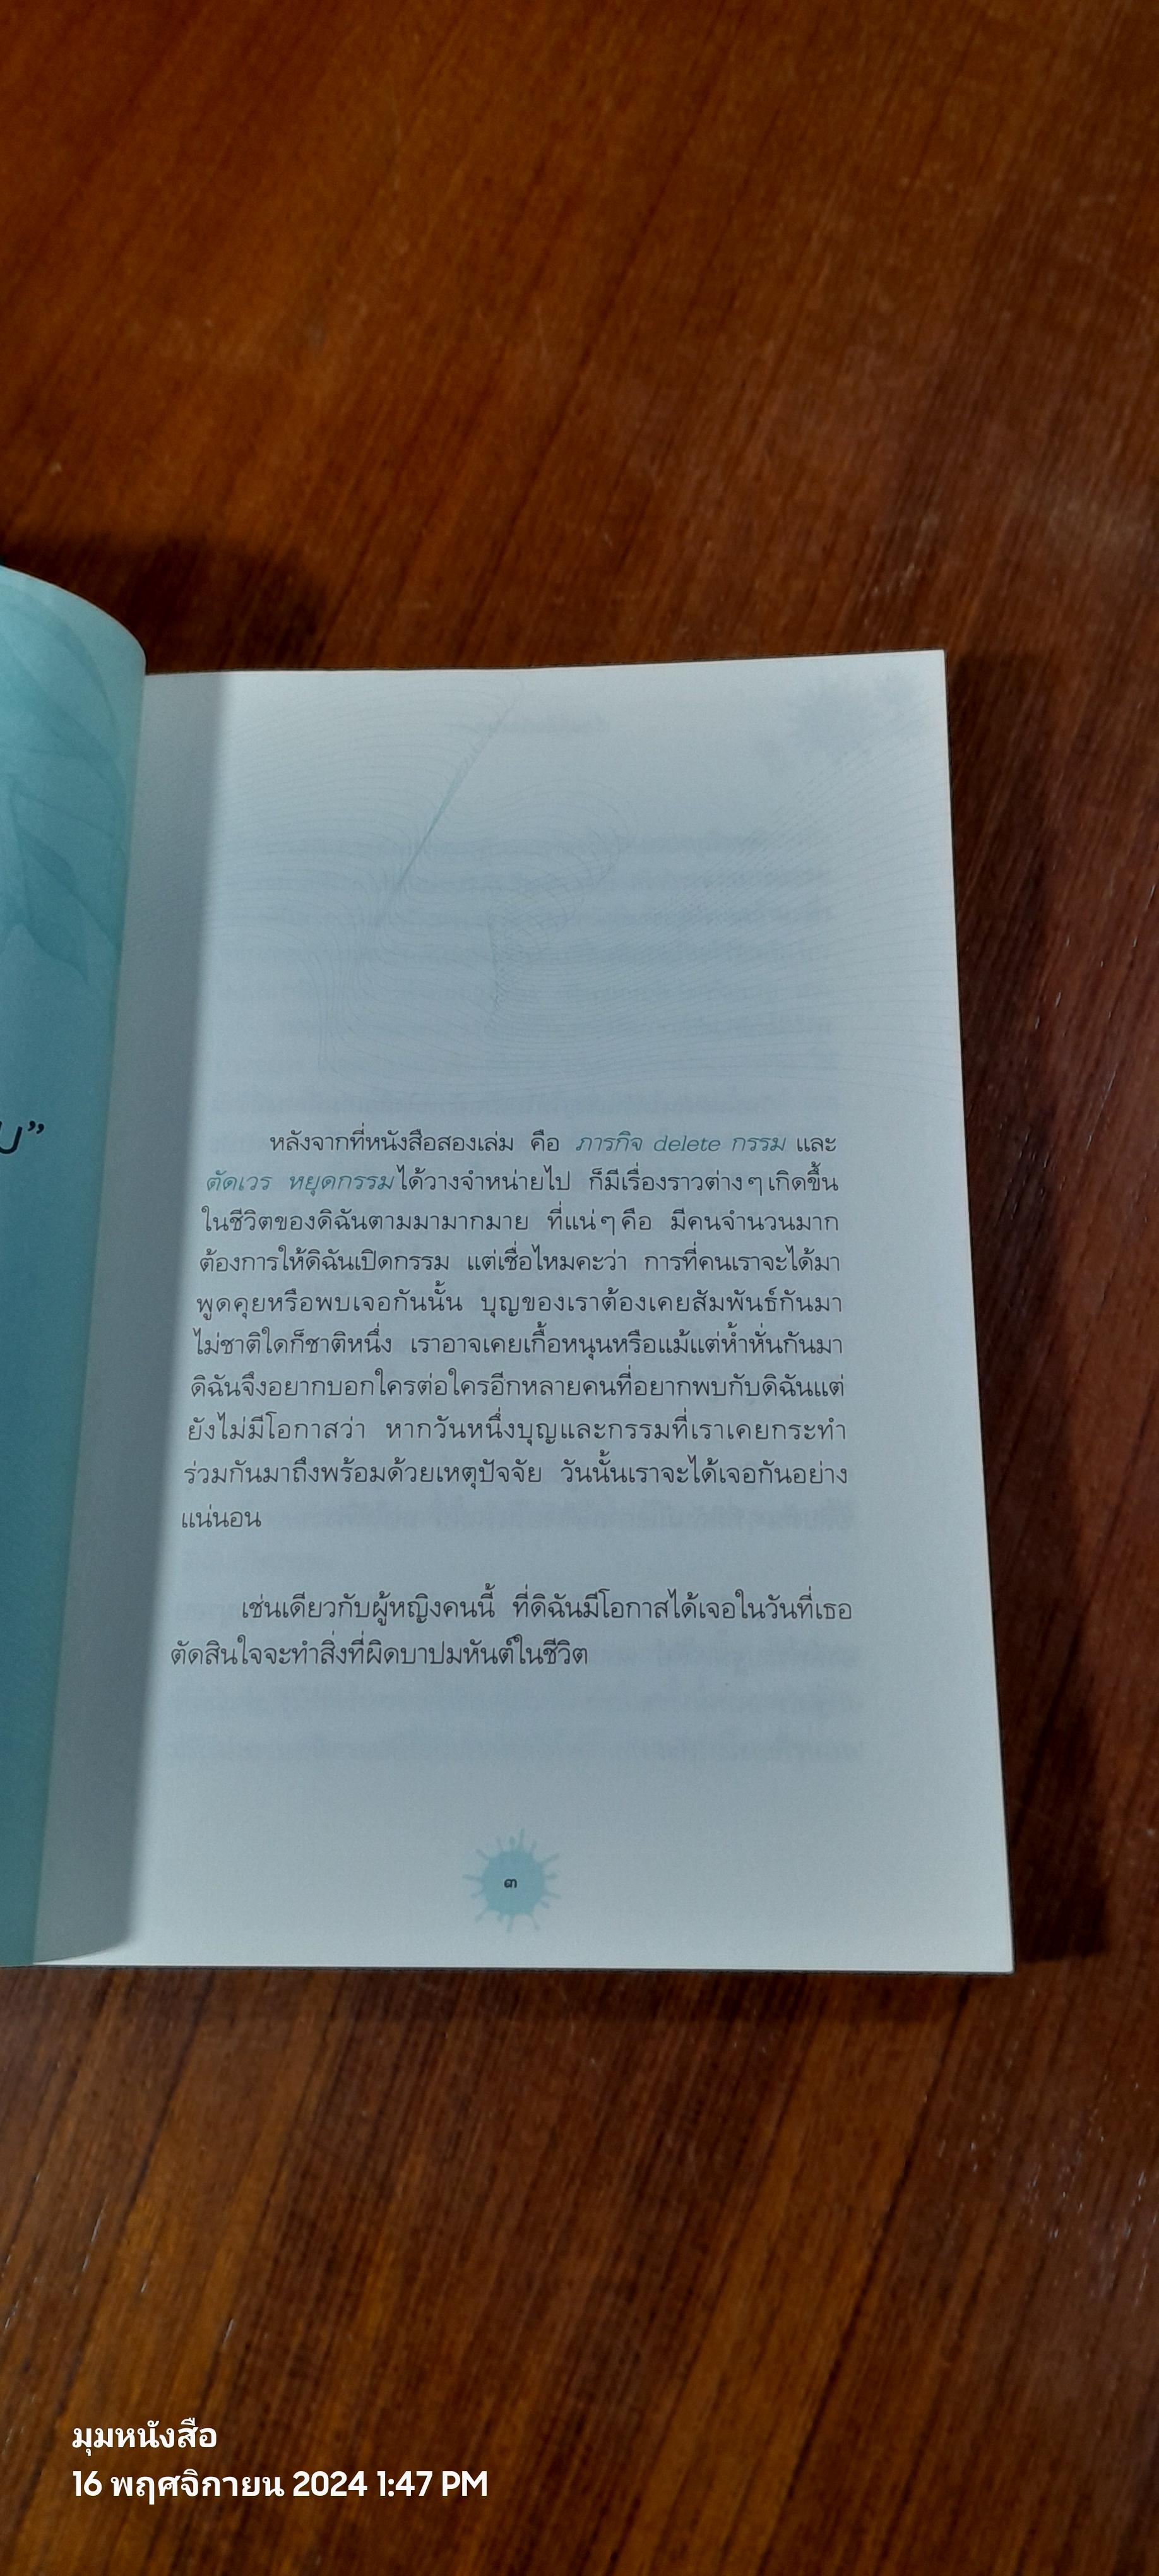 หลังจากที่หนังสือสองเล่ม คือ ภารกิจ delete กรรม และ
ตัดเวร หยุดกรรม ได้วางจำหน่ายไป ก็มีเรื่องราวต่าง ๆ เกิดขึ้น
ในชีวิตของดิฉันตามมามากมาย ที่แน่ ๆ คือ มีคนจำนวนมาก
ต้องการให้ดิฉันเปิดกรรม แต่เชื่อไหมคะว่า การที่คนเราจะได้มา
พูดคุยหรือพบเจอกันนั้น บุญของเราต้องเคยสัมพันธ์กันมา
ไม่ชาติใดก็ชาติหนึ่ง เราอาจเคยเกื้อหนุนหรือแม้แต่ห้ำหั่นกันมา
ดิฉันจึงอยากบอกใครต่อใครอีกหลายคนที่อยากพบกับดิฉันแต่
ยังไม่มีโอกาสว่า หากวันหนึ่งบุญและกรรมที่เราเคยกระทำ
ร่วมกันมาถึงพร้อมด้วยเหตุปัจจัย วันนั้นเราจะได้เจอกันอย่าง
แน่นอน
เช่นเดียวกับผู้หญิงคนนี้ ที่ดิฉันมีโอกาสได้เจอในวันที่เธอ
ตัดสินใจจะทำสิ่งที่ผิดบาปมหันต์ในชีวิต
๓
มุมหนังสือ
16 พฤศจิกายน 2024 1:47 PM